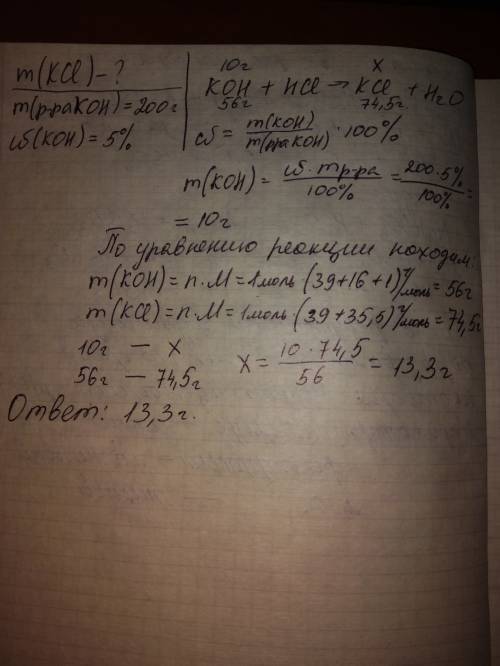 m(KCl) - ?
m(р-ра KOH) = 200 г
ω(KOH) = 5%
10г x
KOH + HCl → KCl + H₂O
56г 74,5г
ω = m(KOH) / m(р-ра KOH) · 100%
m(KOH) = ω · m р-ра / 100% = 200 · 5% / 100% =
= 10г
По уравнению реакции находим:
m(KOH) = n · M = 1 моль (39+16+1) г/моль = 56г
m(KCl) = n · M = 1 моль (39+35,5) г/моль = 74,5г
10г — x
56г — 74,5г
x = 10 · 74,5 / 56 = 13,3г
Ответ: 13,3г.